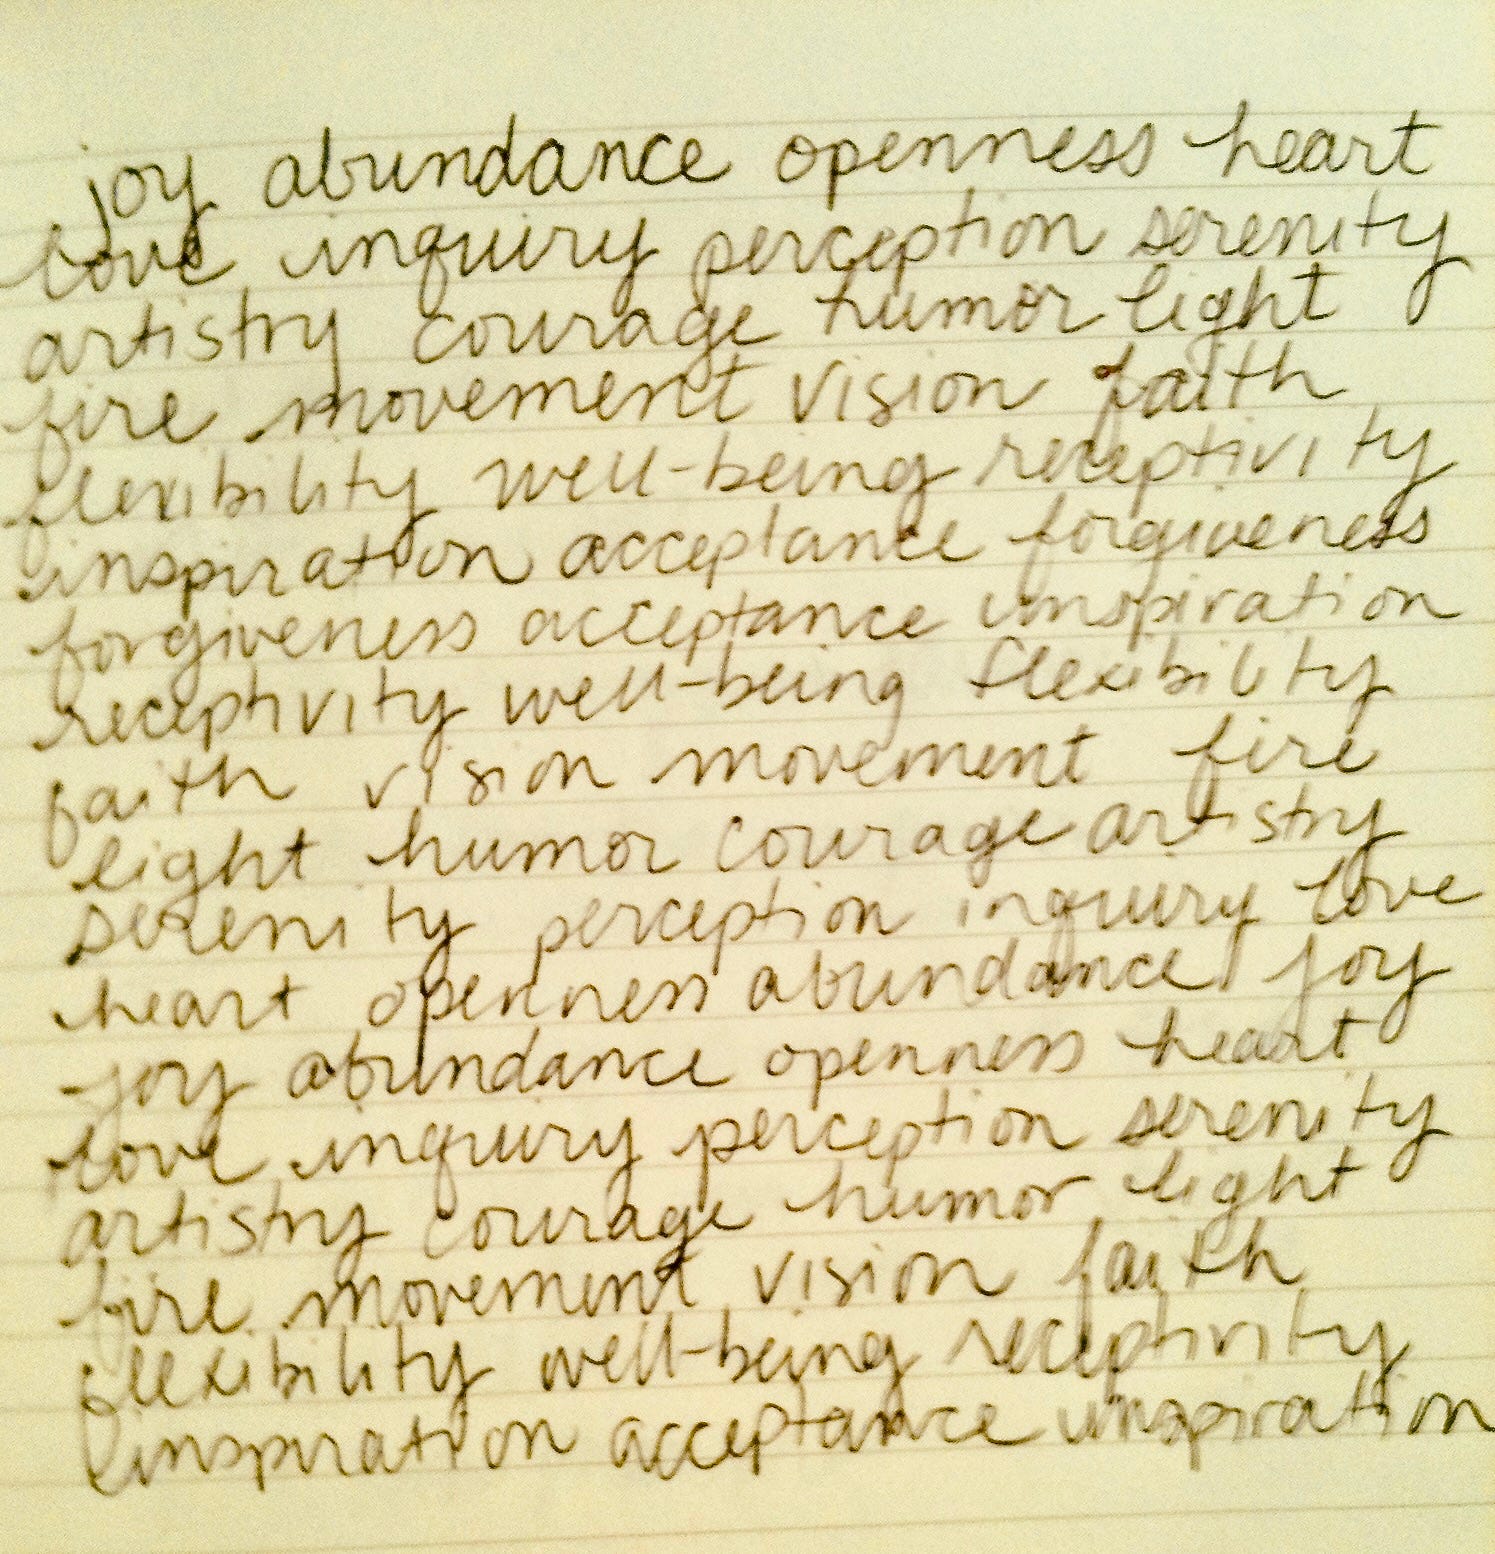 joy abundance openness heart
love inquiry perception serenity
artistry courage humor light
fire movement vision faith
flexibility well-being receptivity
inspiration acceptance forgiveness
forgiveness acceptance inspiration
receptivity well-being flexibility
faith vision movement fire
light humor courage artistry
serenity perception inquiry love
heart openness abundance joy
joy abundance openness heart
love inquiry perception serenity
artistry courage humor light
fire movement vision faith
flexibility well-being receptivity
inspiration acceptance inspiration